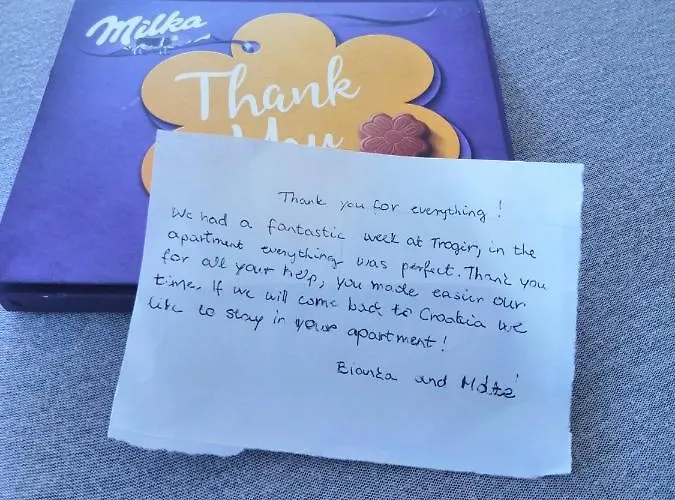 Milka
Thank
You
Thank you for everything!
We had a fantastic week at Trogir, in the
apartment everything was perfect. Thank you
for all your help, you made easier our
time. If we will come back to Croatia we
like to stay in your apartment!
Bianka and Máté